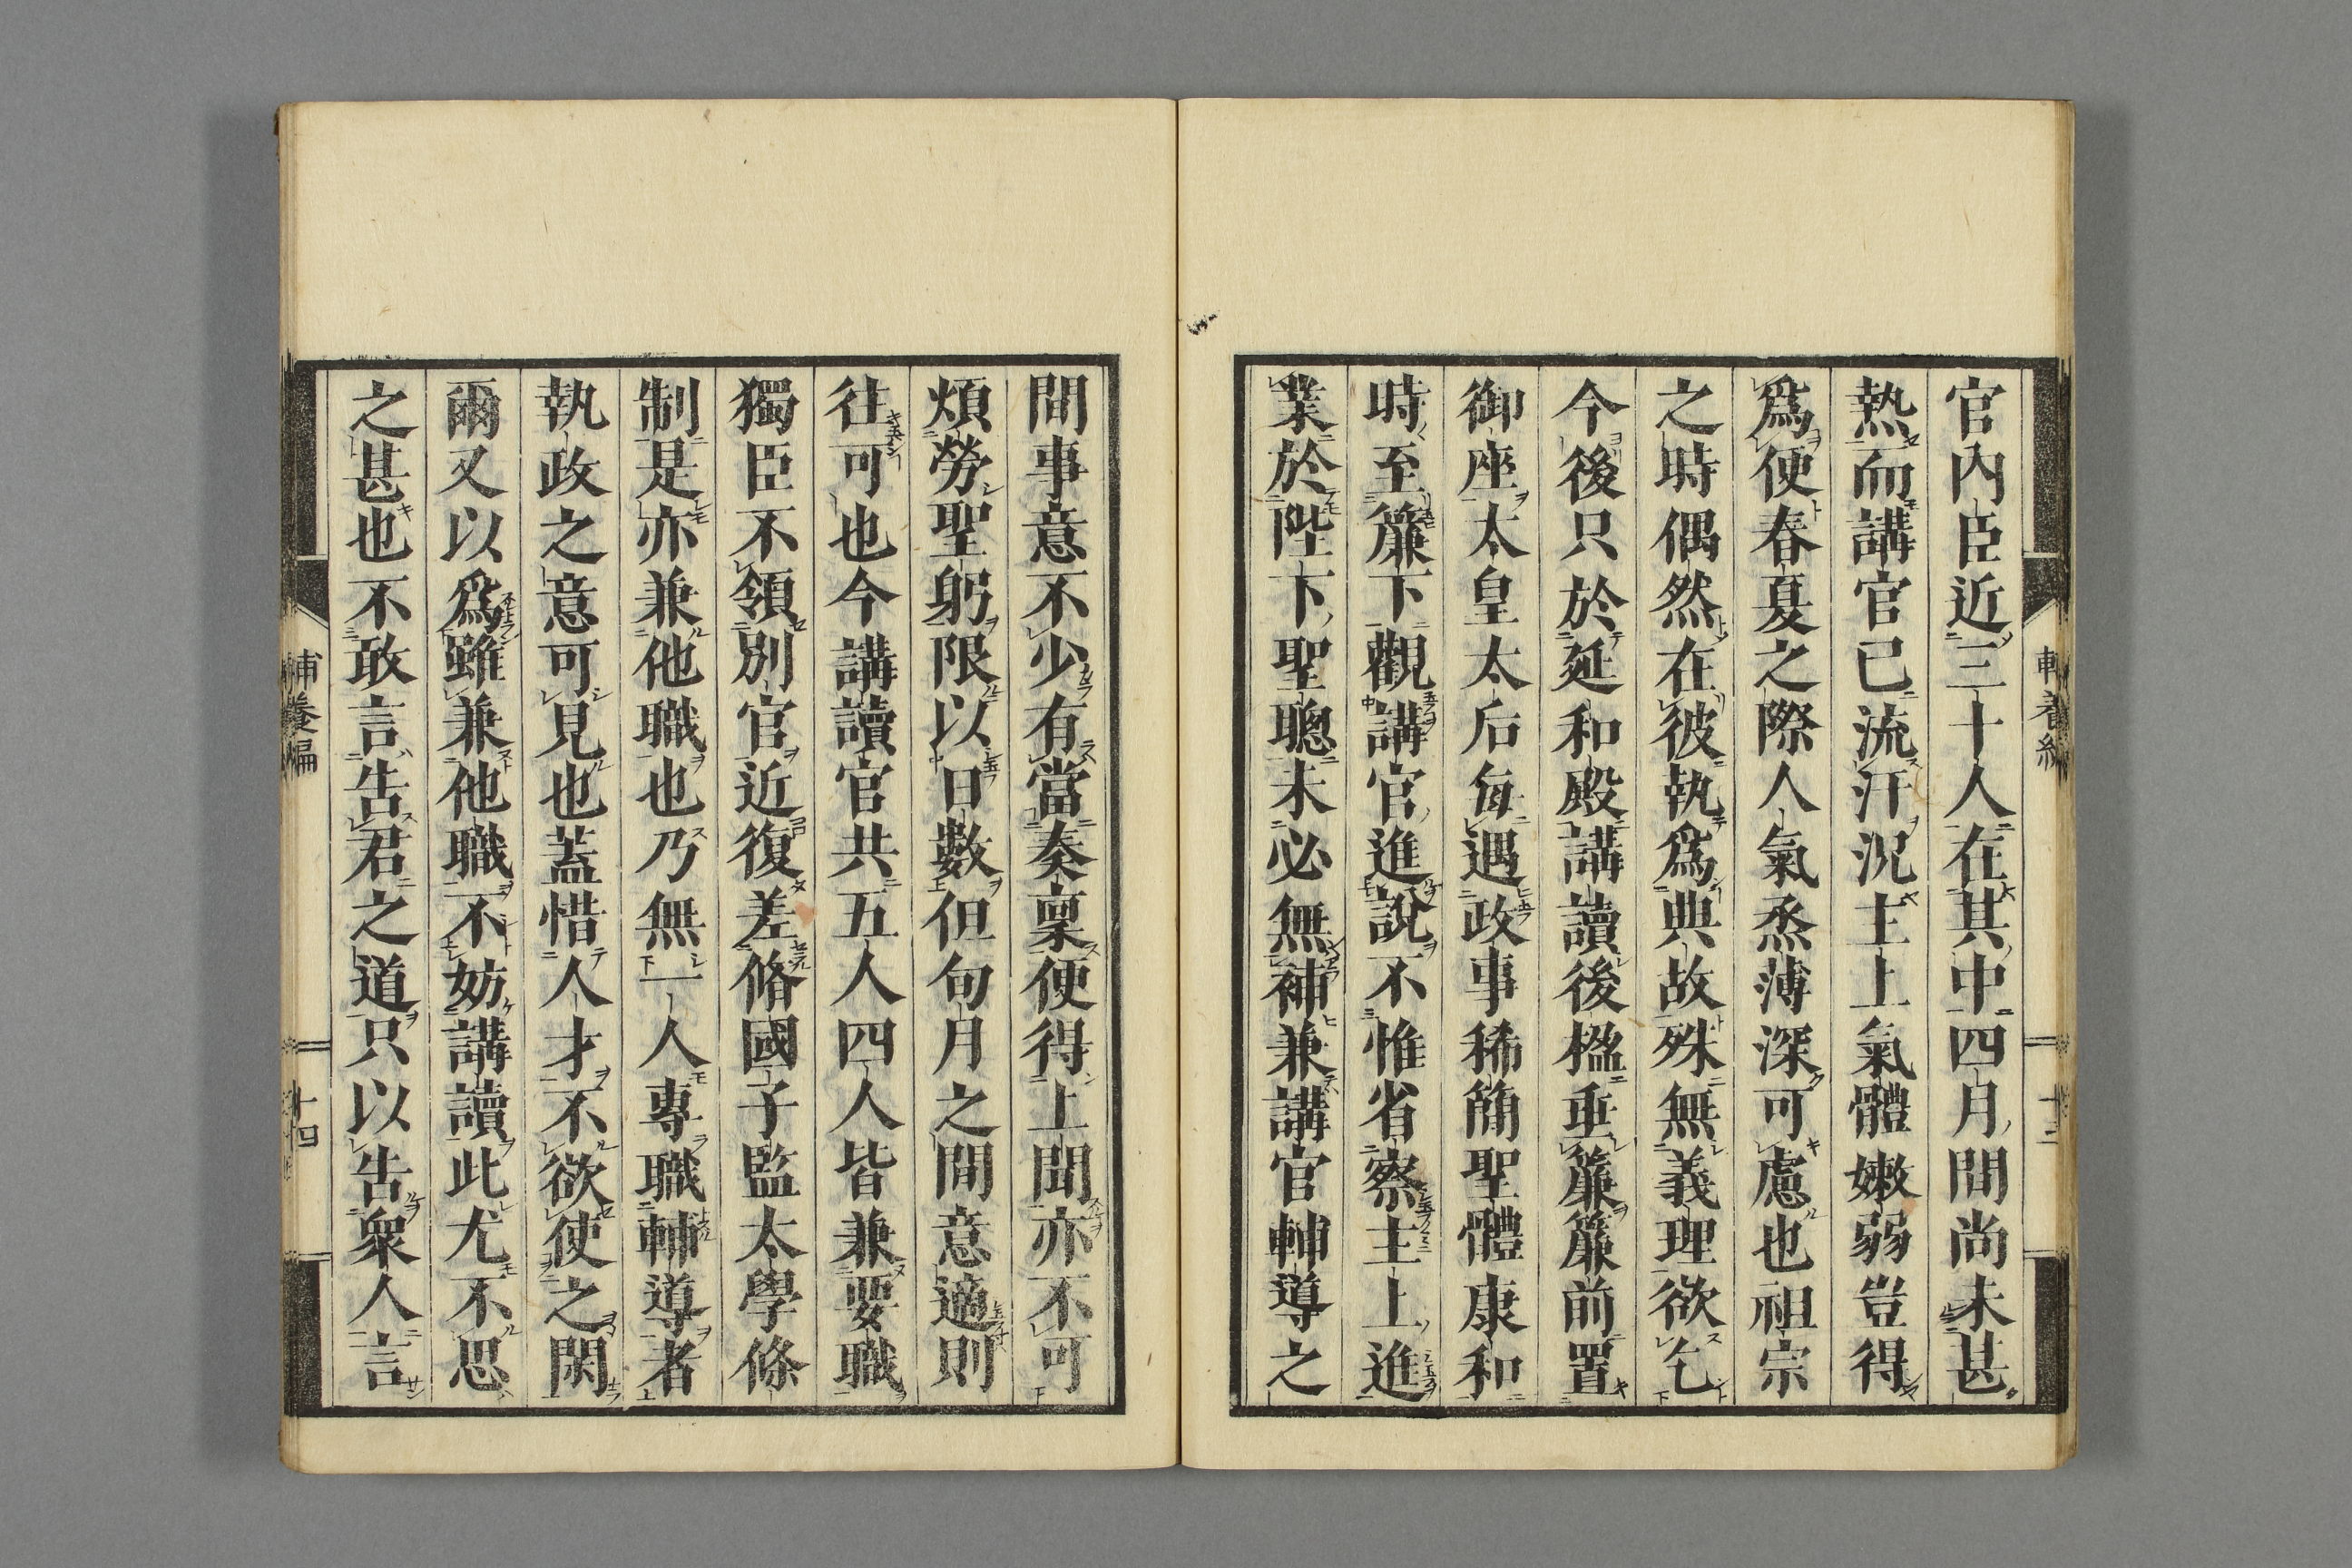 官內臣近三十人在其中四月間尚未甚
熱而講官已流汗況主上氣體嫩弱豈得
爲便春夏之際人氣烝薄深可慮也祖宗
之時偶然在彼執爲典故殊無義理欲乞
今後只於延和殿講讀後楹垂簾簾前置
御座太皇太后每遇政事稀簡聖體康和
時至簾下觀講官進說不惟省察主上進
業於陛下聖聰未必無補兼講官輔導之
輔養編
十三
間事意不少有當奏稟便得上聞亦不可
煩勞聖躬限以日數但旬月之間意適則
往可也今講讀官共五人四人皆兼要職
獨臣不領別官近復差脩國子監太學條
制是亦兼他職也乃無一人專職輔導者
執政之意可見也蓋惜人才不欲使之閑
爾又以爲雖兼他職不妨講讀此尤不思
之甚也不敢言告君之道只以告衆人言
輔養編
十四